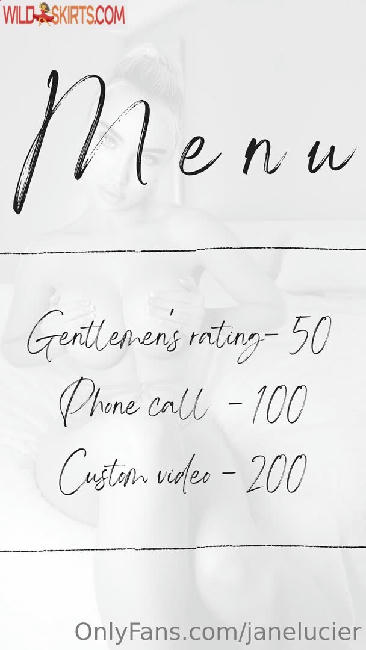 WILDSKIRTS.COM
Menu
Gentlemen's rating- 50
Phone call - 100
Custom video - 200
OnlyFans.com/janelucier